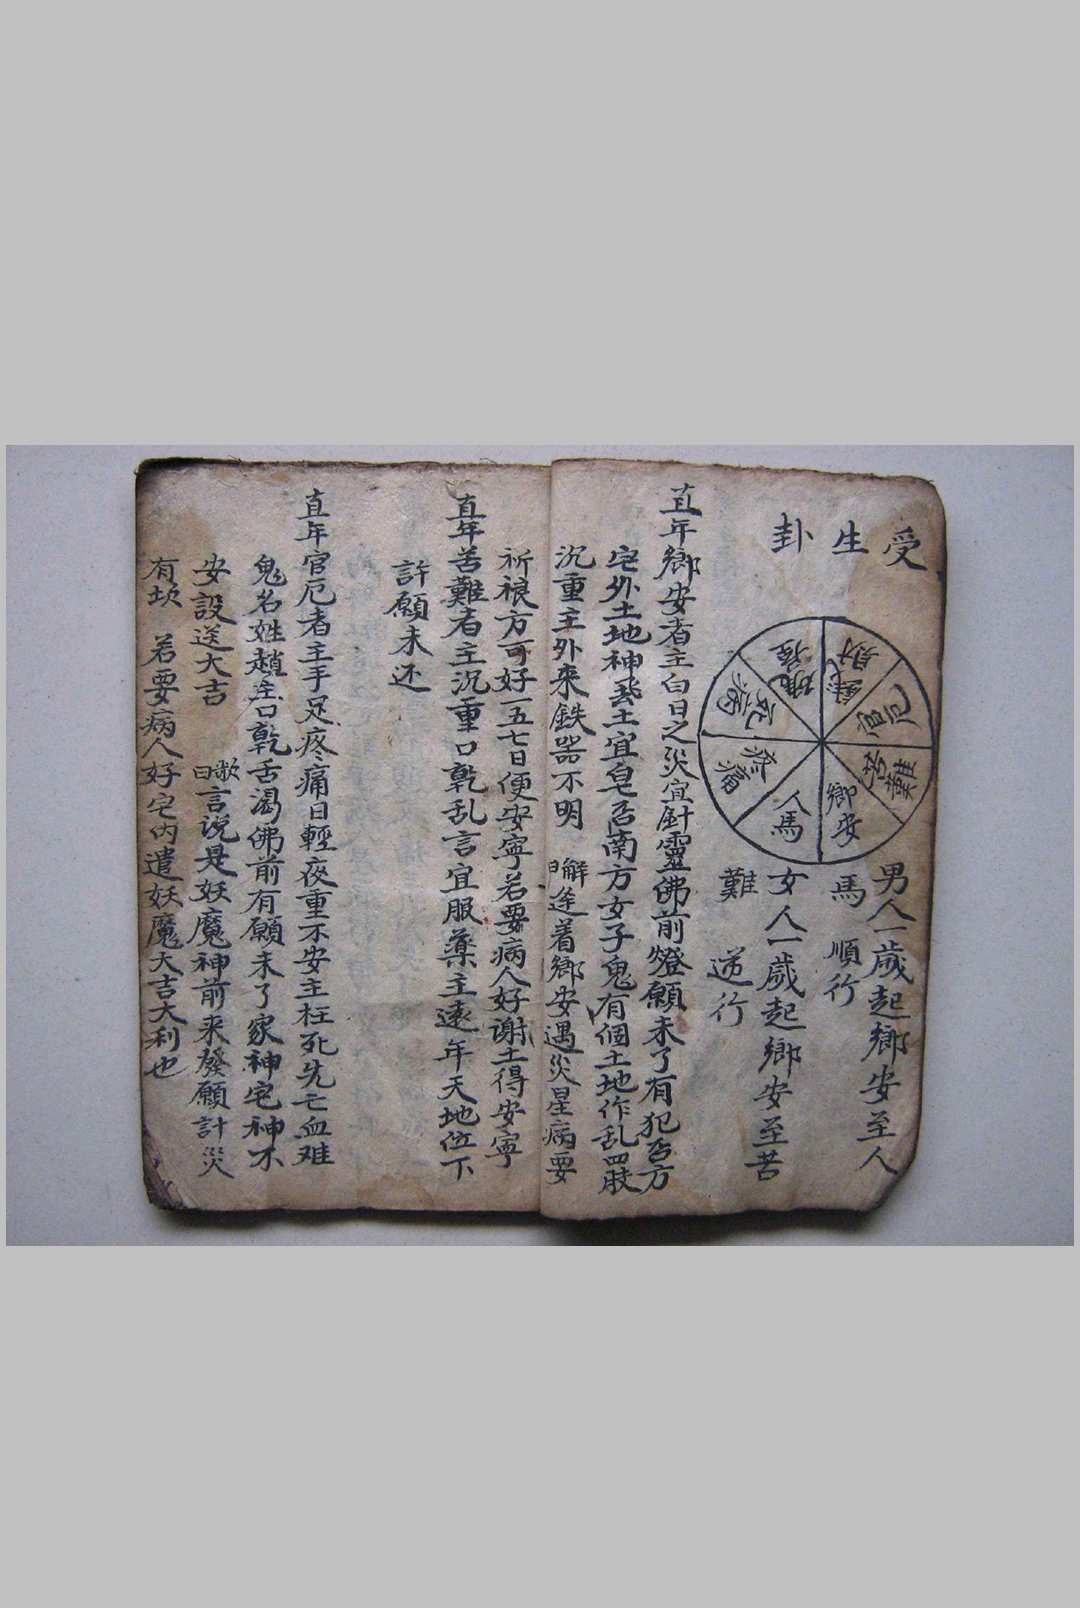 受生卦
錢財
官厄
苦難
鄉安
人馬
疼痛
死病
男人一歲起鄉安至人
馬 順行
女人一歲起鄉安至苦
難 逆行
直年鄉安者主白日之災宜針靈佛前燈願未了有犯
宅外土地神 土宜 南方女子鬼有個土地作乱四肢
沉重主外來鉄器不明 解曰 逢着鄉安遇災星病要
祈禳方可好一五七日便安宁若要病人好谢土得安寧
直年苦難者主沉重口乾乱言宜服藥主遠年天地位下
許願未还
直年官厄者主手足疼痛日輕夜重不安主枉死先亡血难
鬼名姓趙主口乾舌渴佛前有願未了家神宅神不
安設送大吉 歌曰 言说是妖魔神前来發願計災
有坎 若要病人好宅内遣妖魔大吉大利也